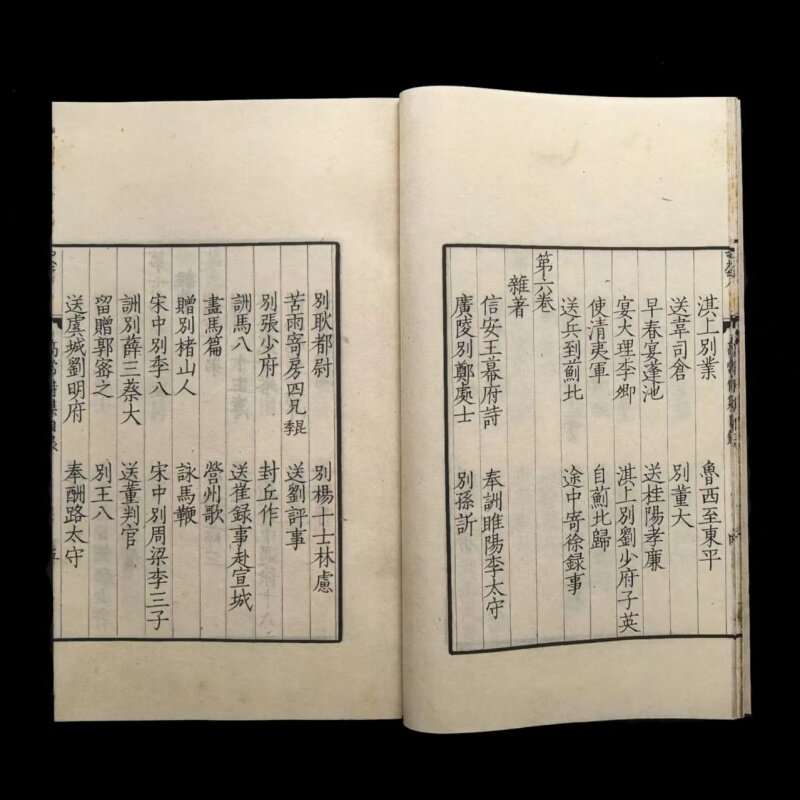 淇上別業 魯西至東平
送韋司倉 別董大
早春宴蓬池 送桂陽孝廉
宴大理李卿 淇上別劉少府子英
使清夷軍 自薊北歸
送兵到薊北 途中寄徐録事
第六卷
雜著
信安王幕府詩 奉詶睢陽李太守
廣陵別鄭處士 別孫訢
別耿都尉 別楊十士林慮
苦雨寄房四兄輩 送劉評事
別張少府 封丘作
詶馬八 送崔録事赴宣城
畫馬篇 營州歌
贈別褚山人 詠馬鞭
宋中別季八 宋中別周梁李三子
詶別薛三蔡大 送董判官
留贈郭審之 別王八
送虞城劉明府 奉酬路太守